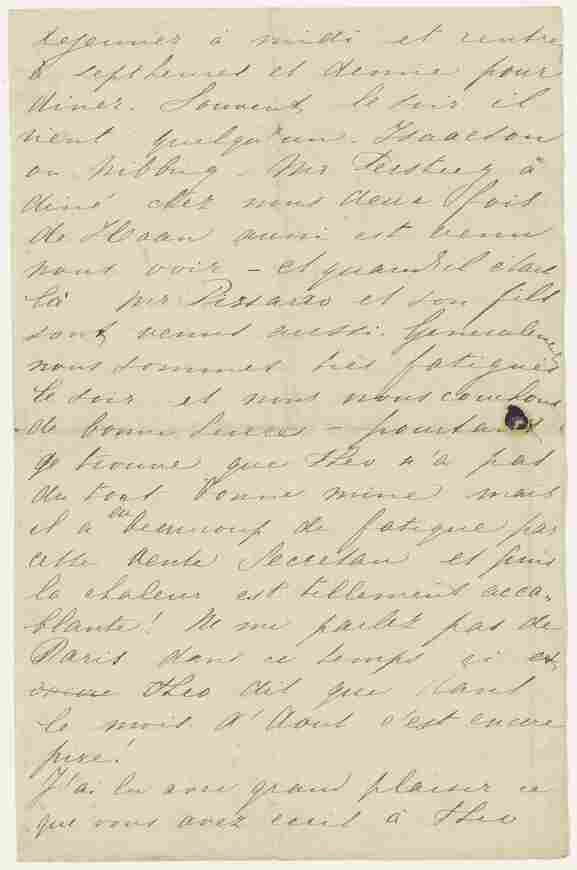 dejeuner à midi et rentre
à sept heures et demie pour
diner. Souvent le soir il
vient quelqu'un. Isaacson
ou Nibbrig – Mr Tersteeg à
diné chez nous deux fois
de Haan aussi est venu
nous voir – et quand il était
là Mr Pissarro et son fils
sont venus aussi. Generalement
nous sommes très fatigués
le soir et nous nous couchons
de bonne heure – pourtant
je trouve que Theo n'a pas
du tout bonne mine mais
il a eu beaucoup de fatigue par
cette vente Secretan et puis
la chaleur est tellement acca-
blante! Ne me parlez pas de
Paris dans ce temps ci et
Theo dit que dans
le mois d'Aout c'est encore
pire!
J'ai lu avec grand plaisir ce
que vous avez ecrit à Theo